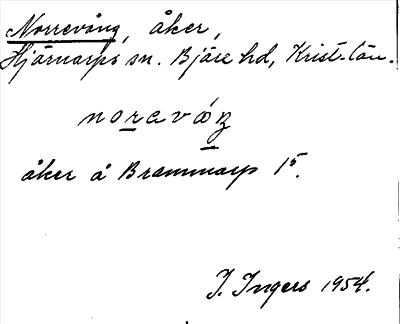 Norrevång, åker,
Hjärnarps sn. Bjäre hd, Krist. län.
noraváŋ
åker å Brammarp 1⁵.
I. Ingers 1954.